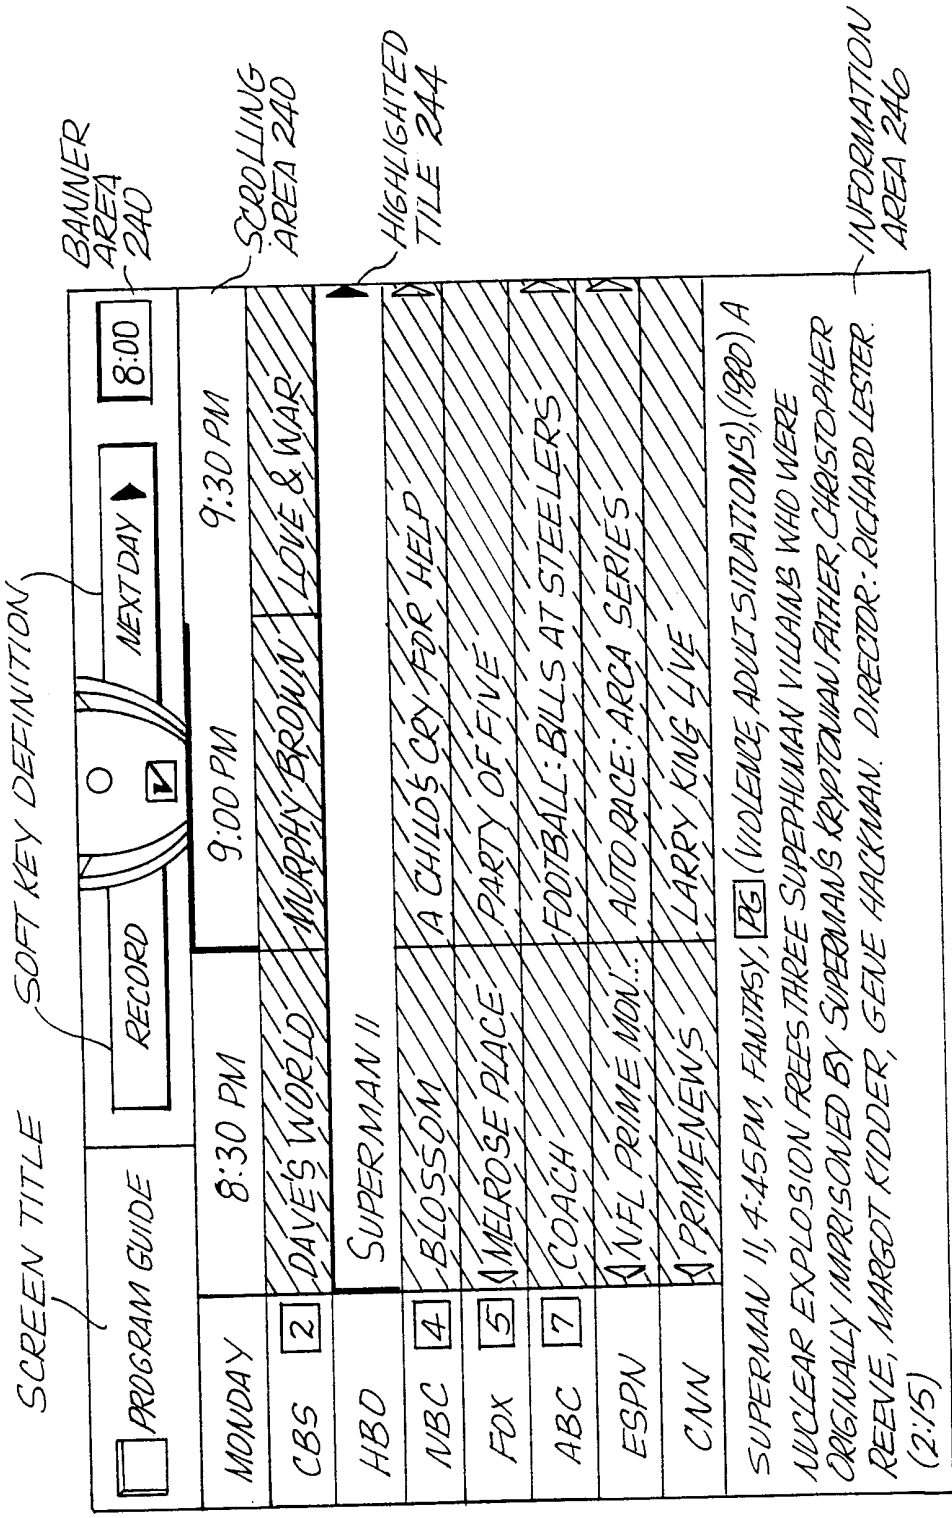 SCREEN TITLE
SOFT KEY DEFINITION
BANNER
AREA
240
PROGRAM GUIDE
RECORD
NEXT DAY
8:00
MONDAY
8:30 PM
9:00 PM
9:30 PM
SCROLLING
AREA 240
CBS
2
DAVE'S WORLD
MURPHY BROWN
LOVE & WAR
HBO
SUPERMAN II
HIGHLIGHTED
TILE 244
NBC
4
BLOSSOM
A CHILD'S CRY FOR HELP
FOX
5
MELROSE PLACE
PARTY OF FIVE
ABC
7
COACH
FOOTBALL: BILLS AT STEELERS
ESPN
NFL PRIME MON...
AUTO RACE: ARCA SERIES
CNN
PRIMENEWS
LARRY KING LIVE
SUPERMAN II, 4:45PM, FANTASY, PG (VIOLENCE, ADULT SITUATIONS), (1980) A
NUCLEAR EXPLOSION FREES THREE SUPEPHUMAN VILLAINS WHO WERE
ORIGINALLY IMPRISONED BY SUPERMAN'S KRYPTONIAN FATHER, CHRISTOPHER
REEVE, MARGOT KIDDER, GENE HACKMAN. DIRECTOR: RICHARD LESTER.
(2:15)
INFORMATION
AREA 246